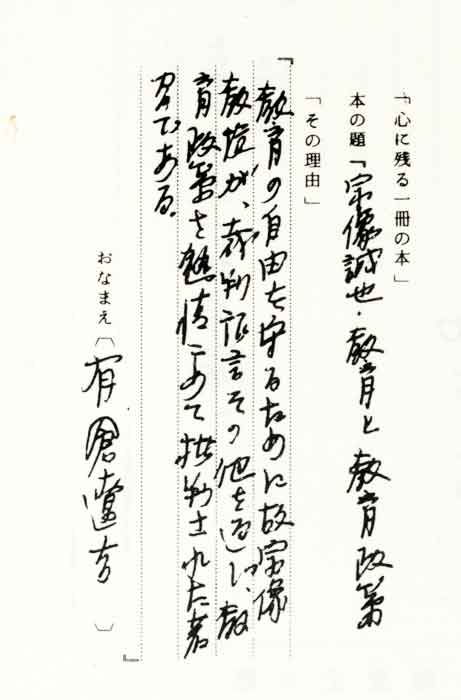 「心に残る一冊の本」
本の題「宗像誠也・教育と教育政策
「その理由」
『教育の自由を守るために故宗像
教授が、裁判証言その他を通じ、教
育政策を熱情こめて批判された著
である。
おなまえ〔有倉遼吉〕
』